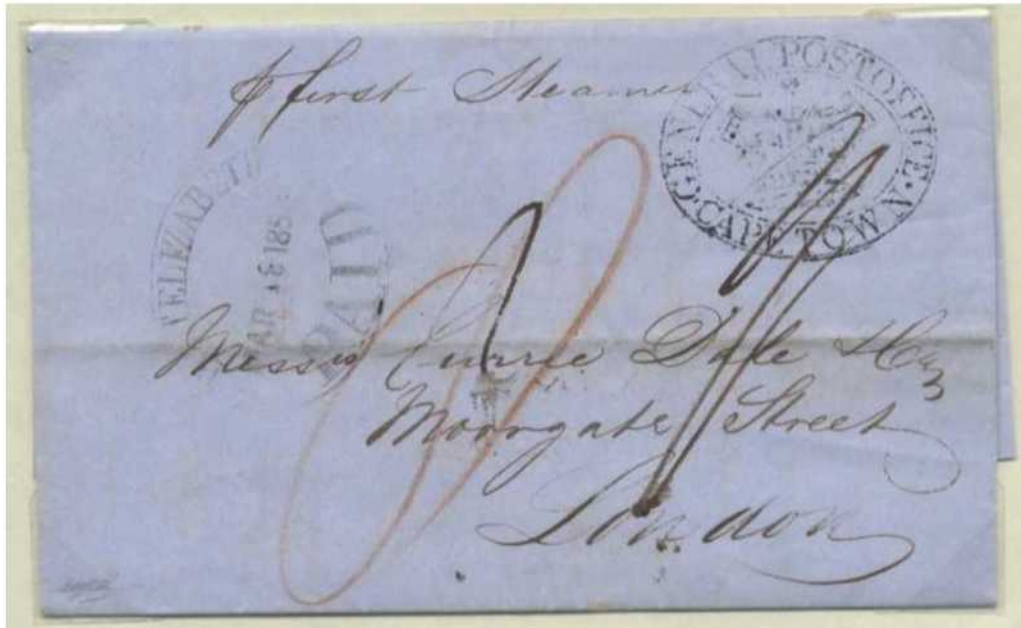 first Steamer
GENERAL POST OFFICE · CAPE TOWN ·
ELIZABETH
PAID
Messrs Currie Dale & Co
Moorgate Street
London